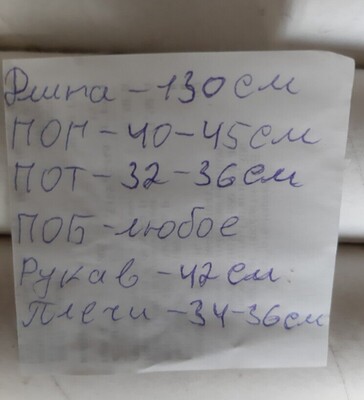 Длина - 130 см
ПОГ - 40 - 45 см
ПОТ - 32 - 36 см
ПОБ - любое
Рукав - 42 см.
Плечи - 34-36 см